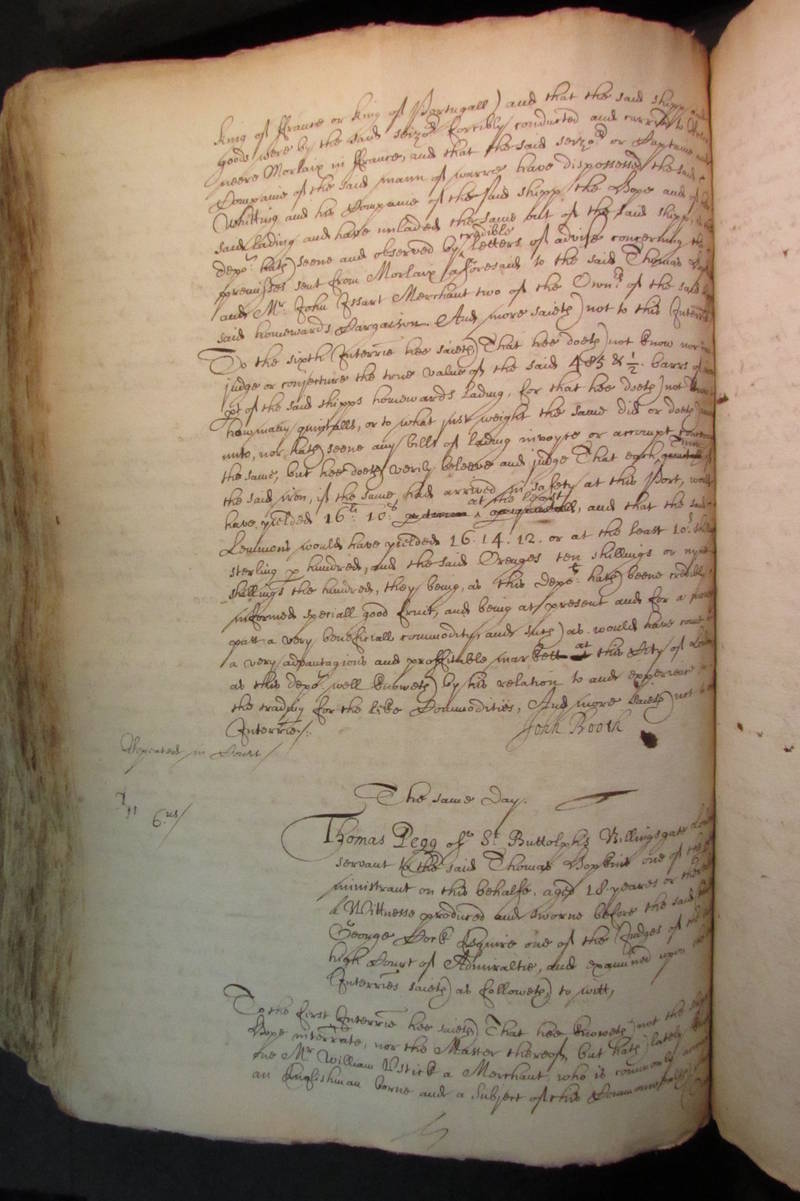 king of ffrance or king of Portugall) and that the said shipp and
goods were by the said seizo:rs forcibly conducted and carried to
neere Morlaix in ffrance, and that the said seizo:rs or Captaine and
Companie of the said mann of warre have dispossessed the said
Whitting and his Companie of the said shipp the Hope and of the
said lading and have unladed the same out of the said shipp,
depo:t hath) seene and observed by credible letters of advise concerning the
premisses sent from Morlaix aforesaid to the said Thomas
and M:r John Issart Merchant two of the Own:rs of the said
said homewards Cargaison. And more saieth) not to this Interrie
To the sixth Interrie hee saieth) That hee doeth) not know nor
judge or conjecture the true value of the said 485 & ½ barrs of
pt of the said shipps homewards lading, for that hee doeth) not
how many quintalls, or to what just weight the same did or doeth)
unto, nor hath seene any bills of lading invoyce or accompt
the same, but hee doeth verily beleeve and judge That each
the said iron, if the same had arrived in safety at this Port, would
have yielded 16:li 10:s at the least, and that the said
Lemmons would have yielded 16. 14. 12. or at the least 10:s
sterling p hundred, and the said Orenges ten shillings or
shillings the hundred, they being, as this depo:t hath) beene credibly
informed speciall good fruit, and being at present and for a
past a very beneficiall commodity and such) as would have
a very advantagious and proffitable markett at this City of
as this depo:t well knoweth) by his relation to and experience in
the trading for the like Commodities, And more saieth) not to
Interries/.
John Booth
Repeated in Court/
The same day.
6:us/
Thomas Pegg of S:t Buttolphs Billingsgate
servant to the said Thomas Hopkins one of the
ministrant on this behalfe, aged 18 yeares or
a Wittnesse produced and sworne before the said
George Cock Esquire one of the Judges of the
high Court of Admiraltie, and examined upon
Interries saieth) as followeth) to witt,
To the first Interrie hee saieth) That hee knoweth) not the
Hope interrate, nor the Master thereof, but hath) lately
one M:r William Ustick a Merchant, who is commonly
an Englishman borne and a Subject of this Commonwealth)